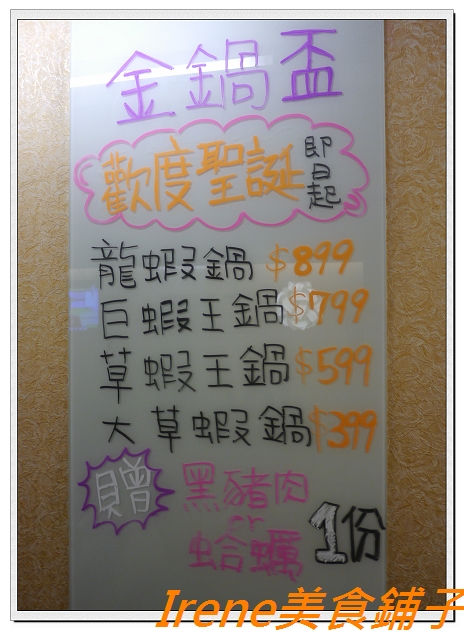 金鍋盃
歡度聖誕
即日起
龍蝦鍋 $899
巨蝦王鍋 $799
草蝦王鍋 $599
大草蝦鍋 $399
贈
黑豬肉
or
蛤蠣
1份
Irene美食鋪子